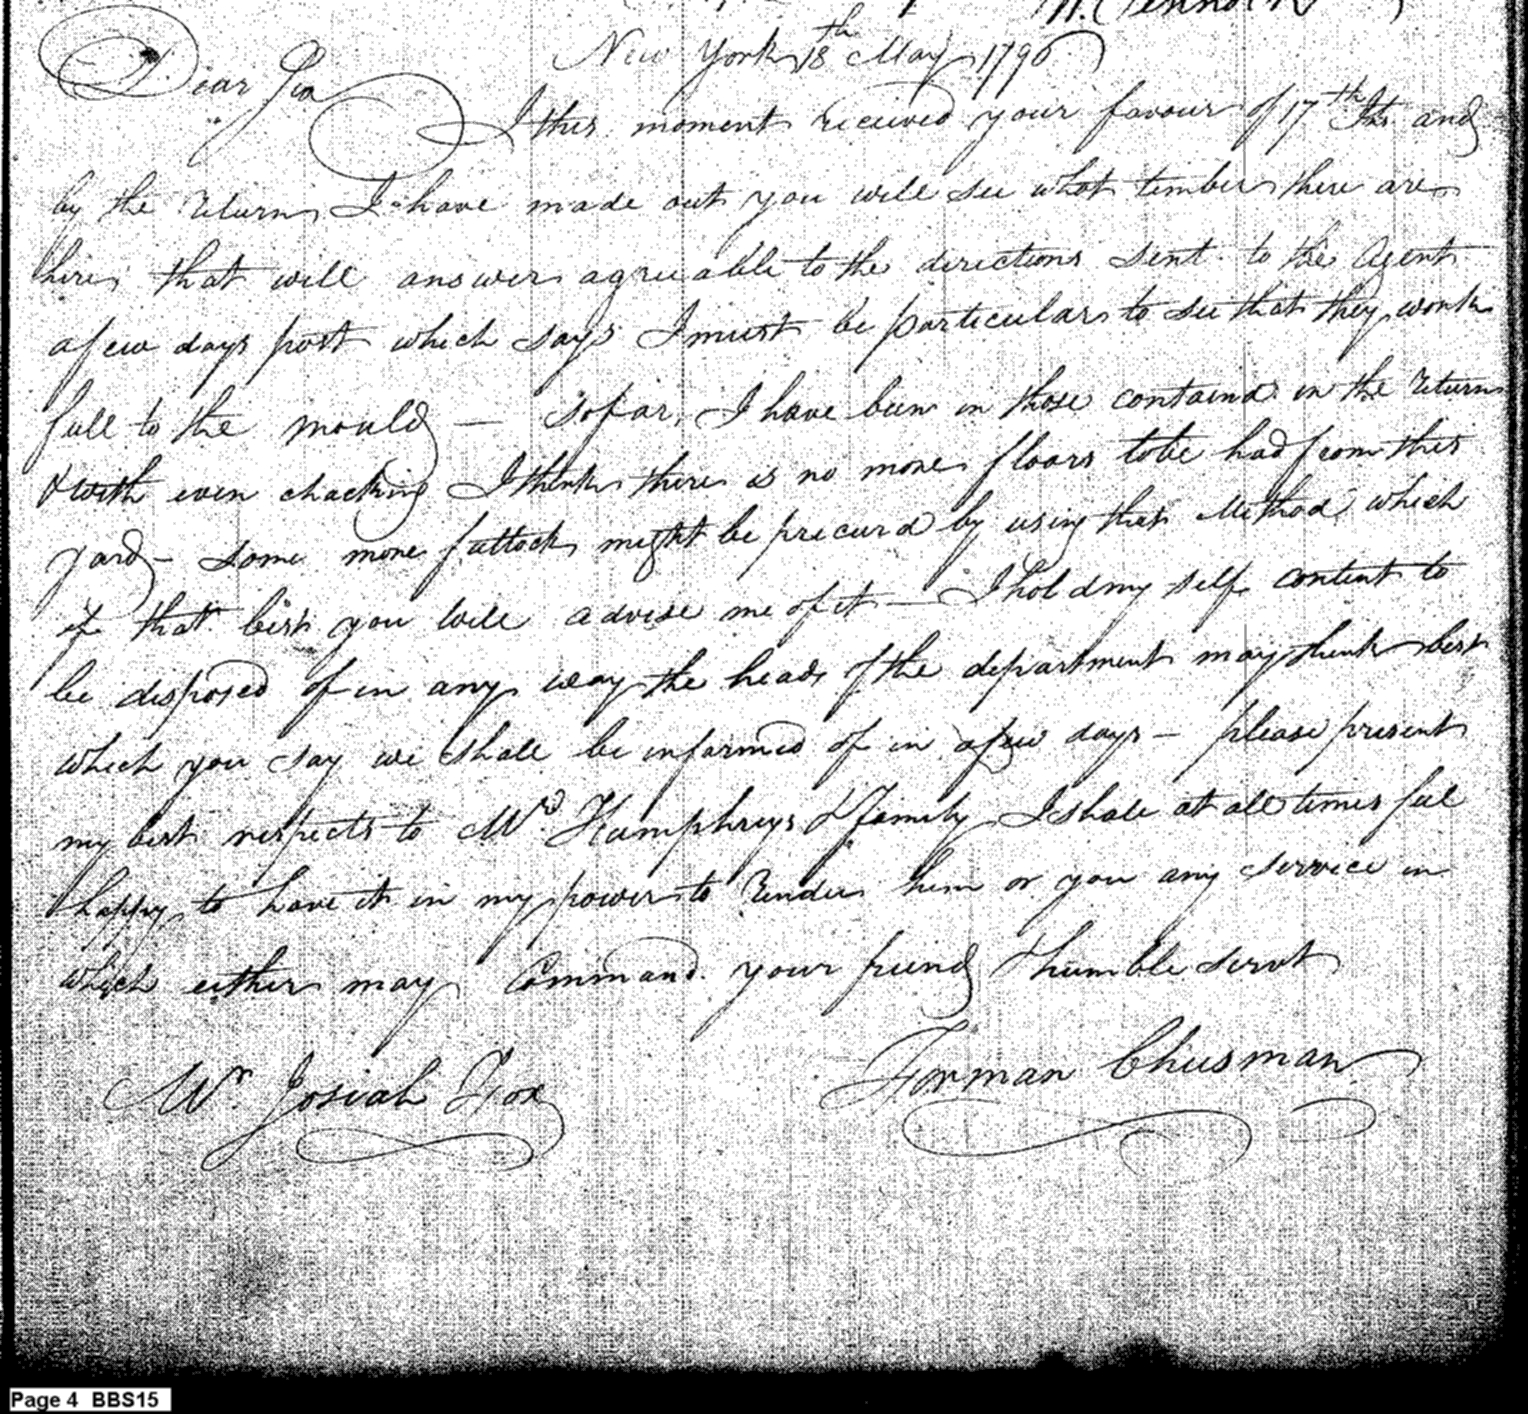 New York 18th May 1796
Dear Sir
I this moment received your favour of 17th Ins and
by the return I have made out you will see what timber there are
here that will answer agreeable to the directions sent to the Agent
a few days past which says I must be particular to see that they work
full to the mould — so far, I have been in those containd in the return
& with even chacking I think there is no more floors to be had from this
yard — some more futtock might be precurd by using that Method which
if that best you will advise me of it — I hold my self content to
be disposed of in any way the heads of the department may think best
which you say we shall be informed of in a few days — please present
my best respects to Mr Humphreys & Family I shall at all times feel
happy to have it in my power to render him or you any service in
which either may Command. your friend & humble servt
Mr. Josiah Fox
Forman Cheesman
Page 4 BBS15